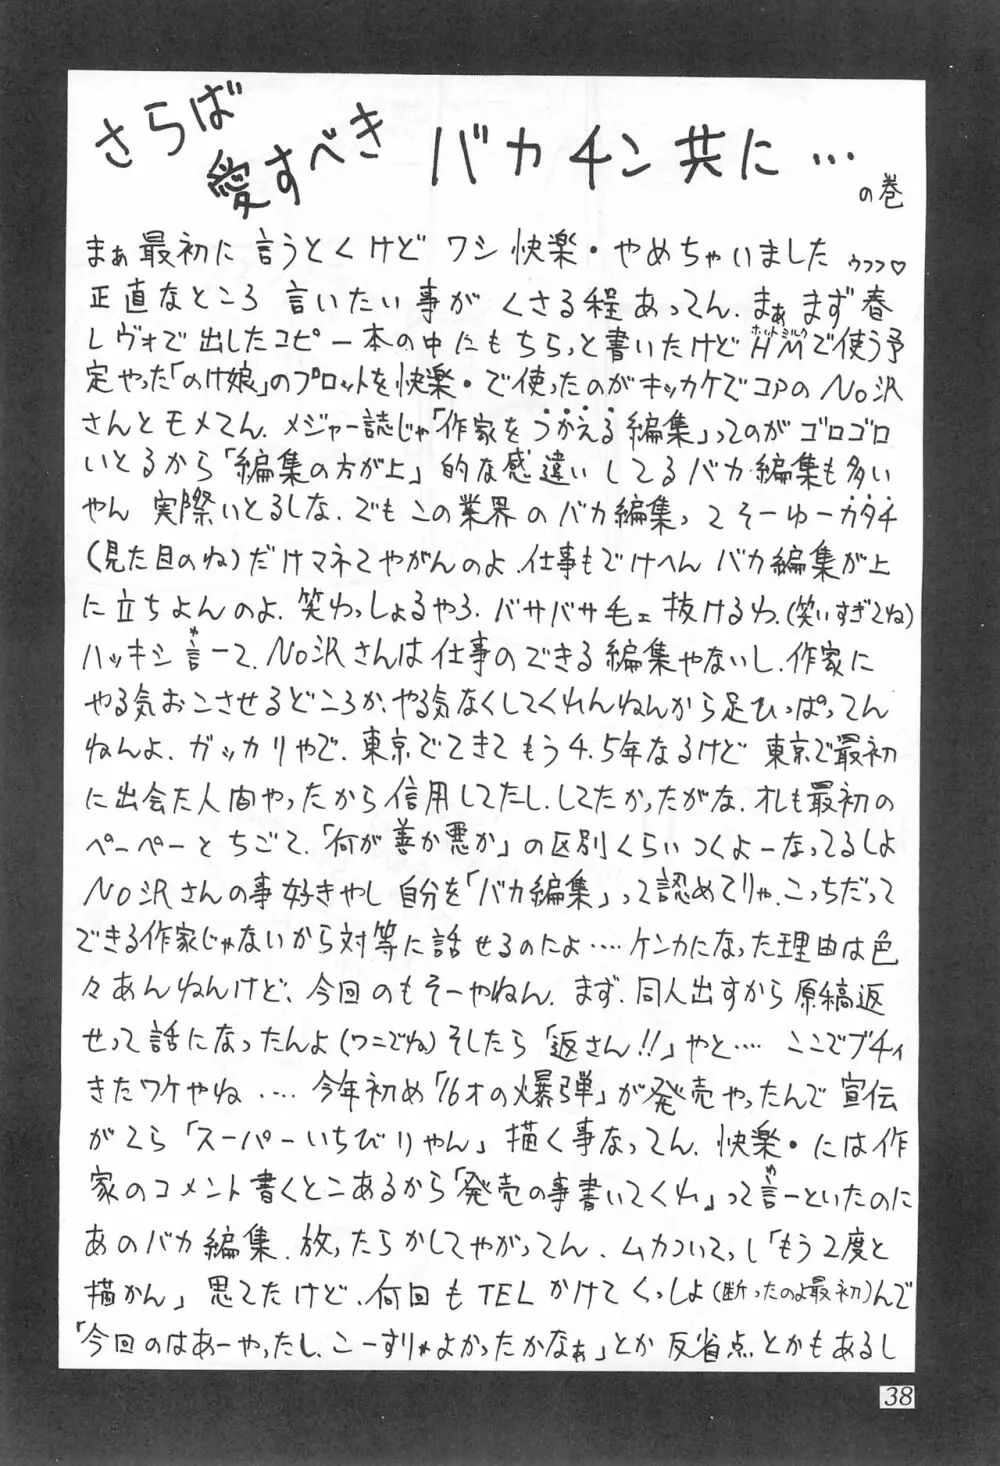 さらば
愛すべき バカチン共に…
の巻
まぁ最初に言うとくけど ワシ 快楽・やめちゃいました ゥフフ♡
正直なところ 言いたい事が くさる程あってん。まぁ まず春
レヴォで出したコピー本の中にもちらっと書いたけどHMで使う予
ホットミルク
定やった「のけ娘」のプロットを快楽・で使ったのがキッカケでコアのNo沢
さんとモメてん。メジャー誌じゃ「作家をつかえる編集」ってのがゴロゴロ
いとるから「編集の方が上」的な感違いしてるバカ編集も多い
やん 実際いとるしな。でもこの業界のバカ編集ってそーゆーカタチ
(見た目のね)だけマネてやがんのよ。仕事もでけへん バカ編集が上
に立ちよんのよ。笑わっしょるやろ。バサバサ毛ェ抜けるわ。(笑いすぎてね)
ハッキシ言って、No沢さんは仕事のできる編集やないし、作家に
わ
やる気おこさせるどころか、やる気なくしてくれんねんから足ひっぱってん
ねんよ。ガッカリやで。東京でてきてもう4.5年なるけど 東京で最初
に出会た人間やったから信用してたし、してたかったがな。オレも最初の
ペーペーとちごて、「何が善か悪か」の区別くらいつくよーなってるしよ
No沢さんの事好きやし 自分を「バカ編集」って認めてりゃ、こっちだって
できる作家じゃないから対等に話せるのによ‥‥ケンカになった理由は色
々あんねんけど、今回のもそーやねん。まず、同人出すから原稿返
せって話になったんよ(ワニでね)そしたら「返さん!!」やと‥‥ここでブチィ
きたワケやね‥‥今年初め「16才の爆弾」が発売やったんで宣伝
がてら「スーパーいちびりやん」描く事なってん。快楽・には作
家のコメント書くとこあるから「発売の事書いてくれ」って言ーといたのに
わ
あのバカ編集、放ったらかしてやがってん。ムカついてっし「もう2度と
描かん」思てたけど、何回もTELかけてくっしよ(断ったのよ最初)んで
「今回のはあーやったし、こーすりゃよかったかなぁ」とか反省点とかもあるし
38